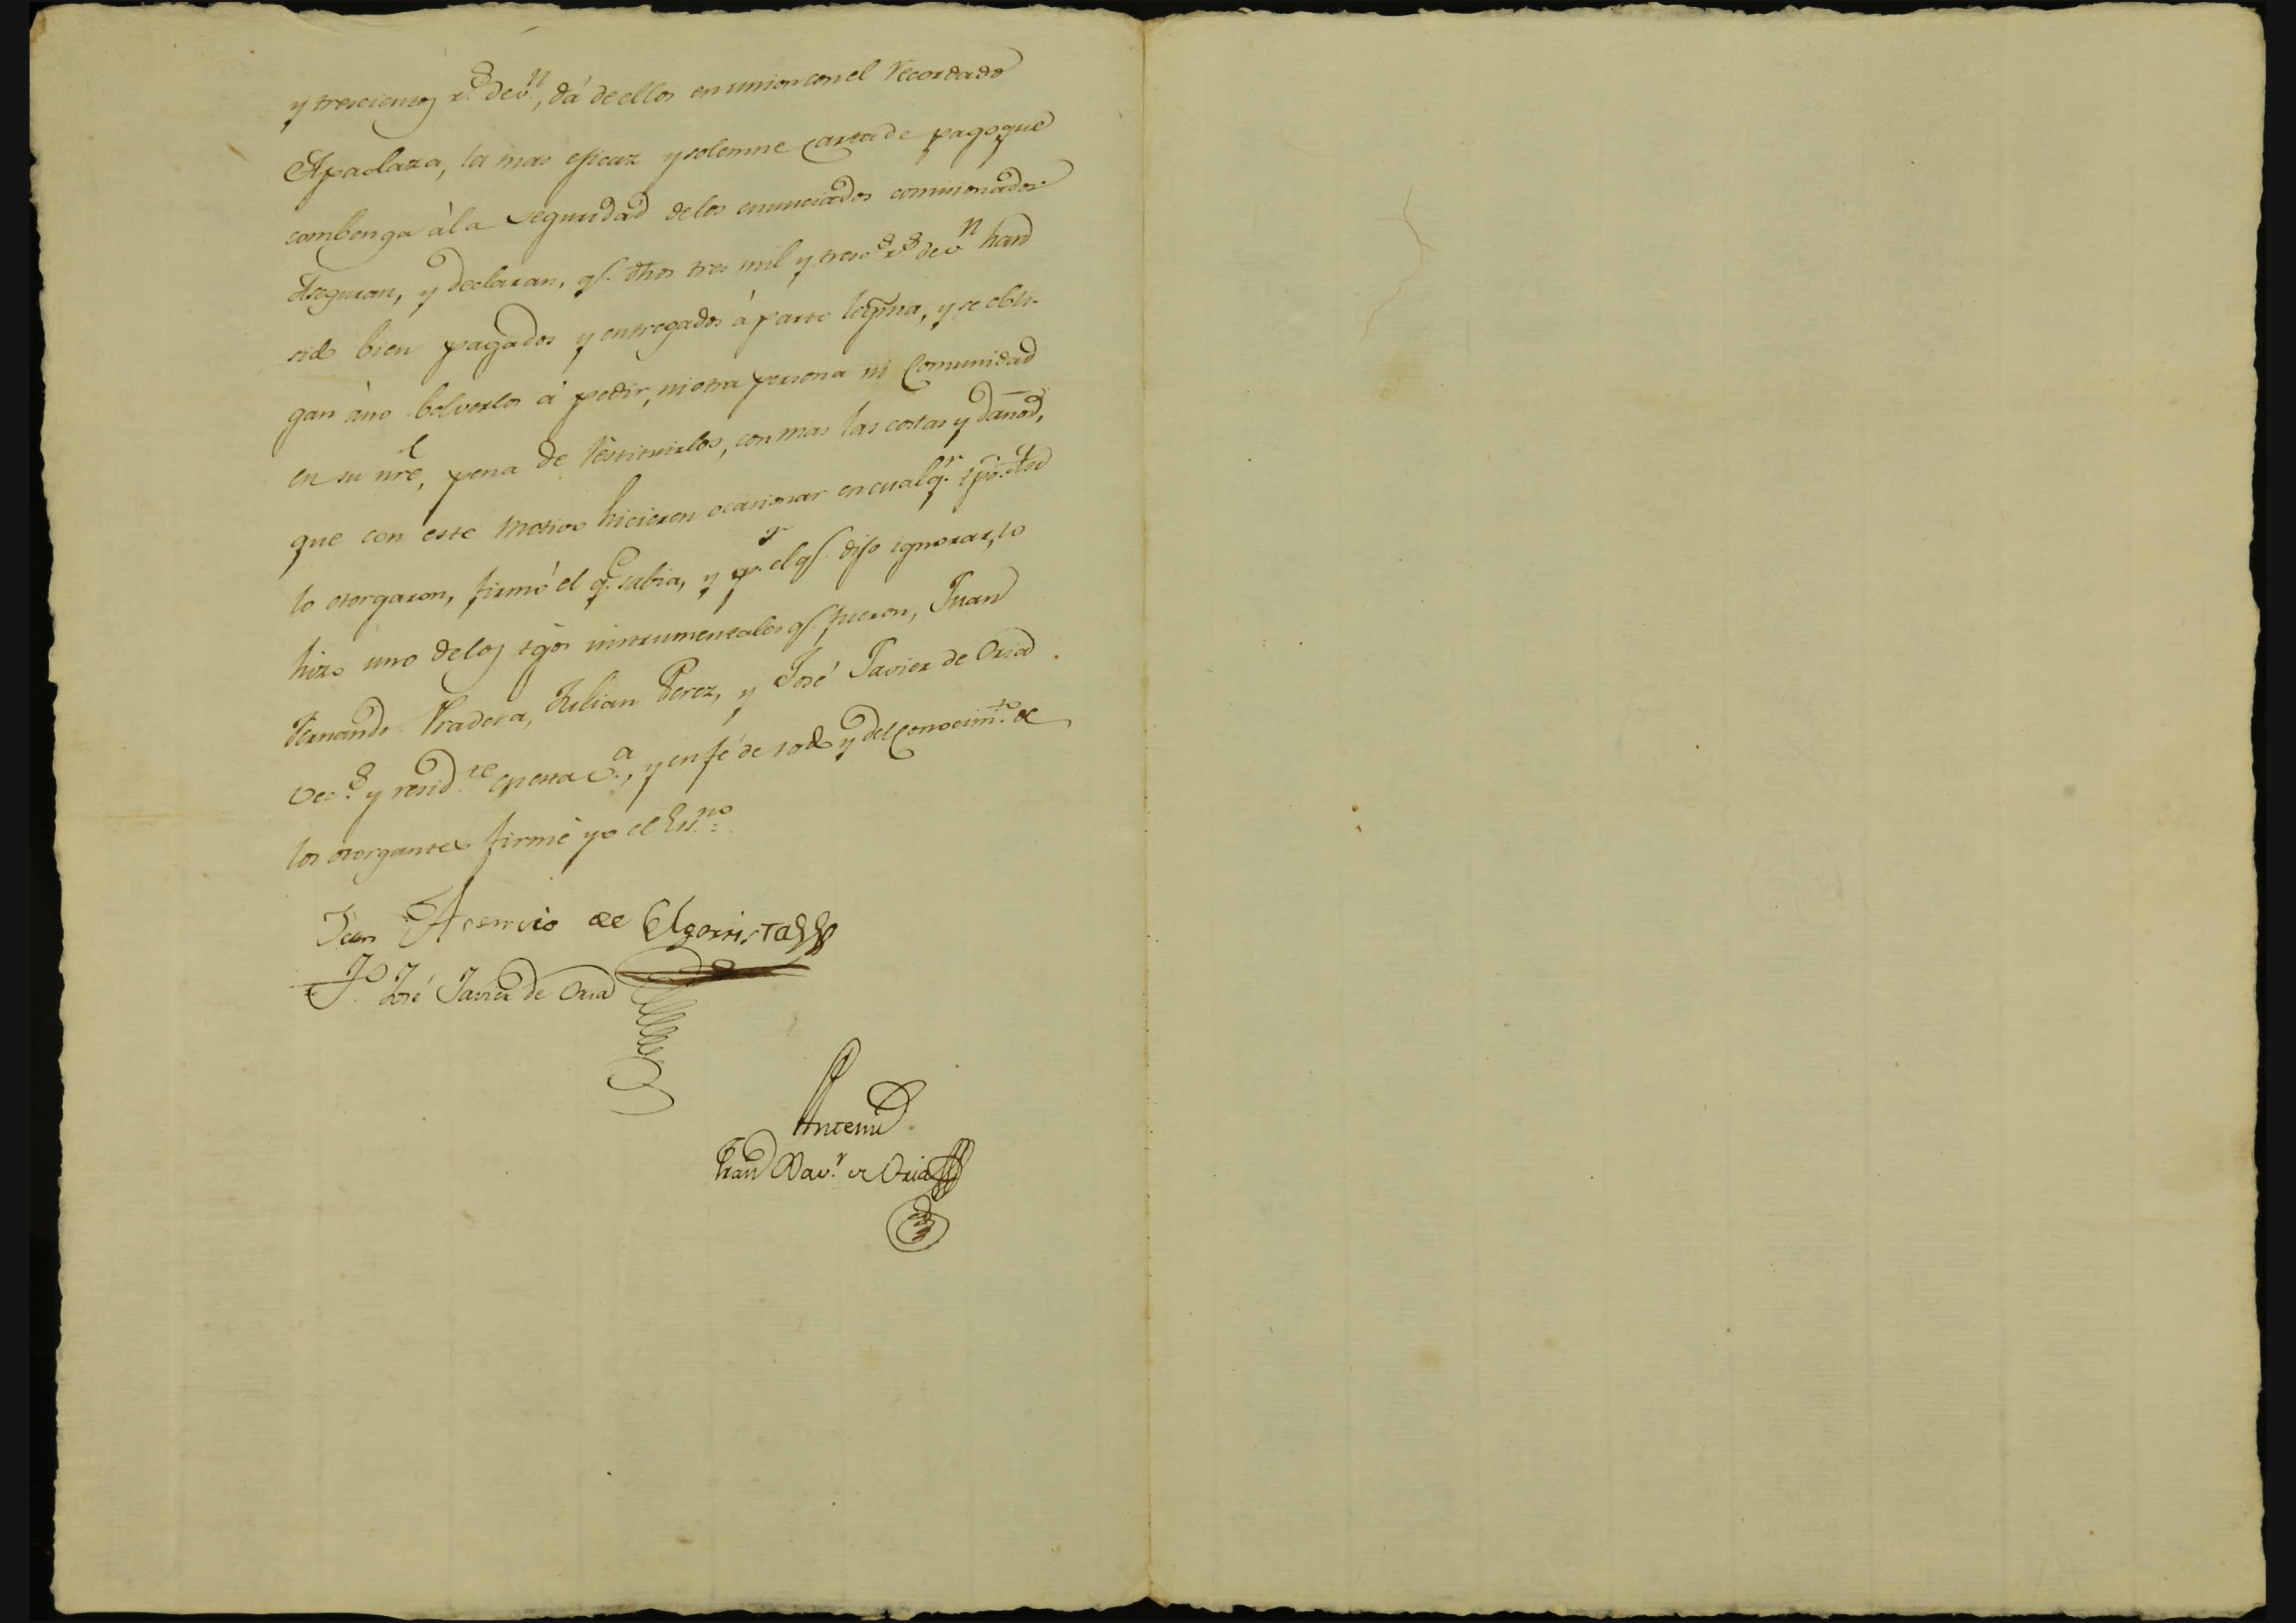 y trescientos r.s de v.n, dá de ellos en union con el recordado
Apaolaza, la mas eficaz y solemne Carta de pago que
combenga à la seguridad de los enunciados comisionados
Aseguran, y declaran, q.e dhos tres mil y tresc.s r.s de v.n han
sido bien pagados y entregados à parte lexma, y se obli-
gan à no bolverlos á pedir, ni otra persona ni Comunidad
en su nre, pena de restituirlos, con mas las costas y daños,
que con este motivo hicieren ocasionar en cualq.r tpo. Asi
lo otorgaron, firmó el q.e sabia, y p.r el q.e dijo ignorar, lo
hizo uno de los tgos instrumentales q.e fueron, Juan
Fernando Pradera, Julian Perez, y José Javier de Oria
vec.s y resid.te en esta v.a, y en fé de todo y del conocim.to de
los otorgantes firmé yo el Ess.no
Juan Asencio de Elgorrista
T.go José Javier de Oria
Antemi
Fran Xav.r de Oria